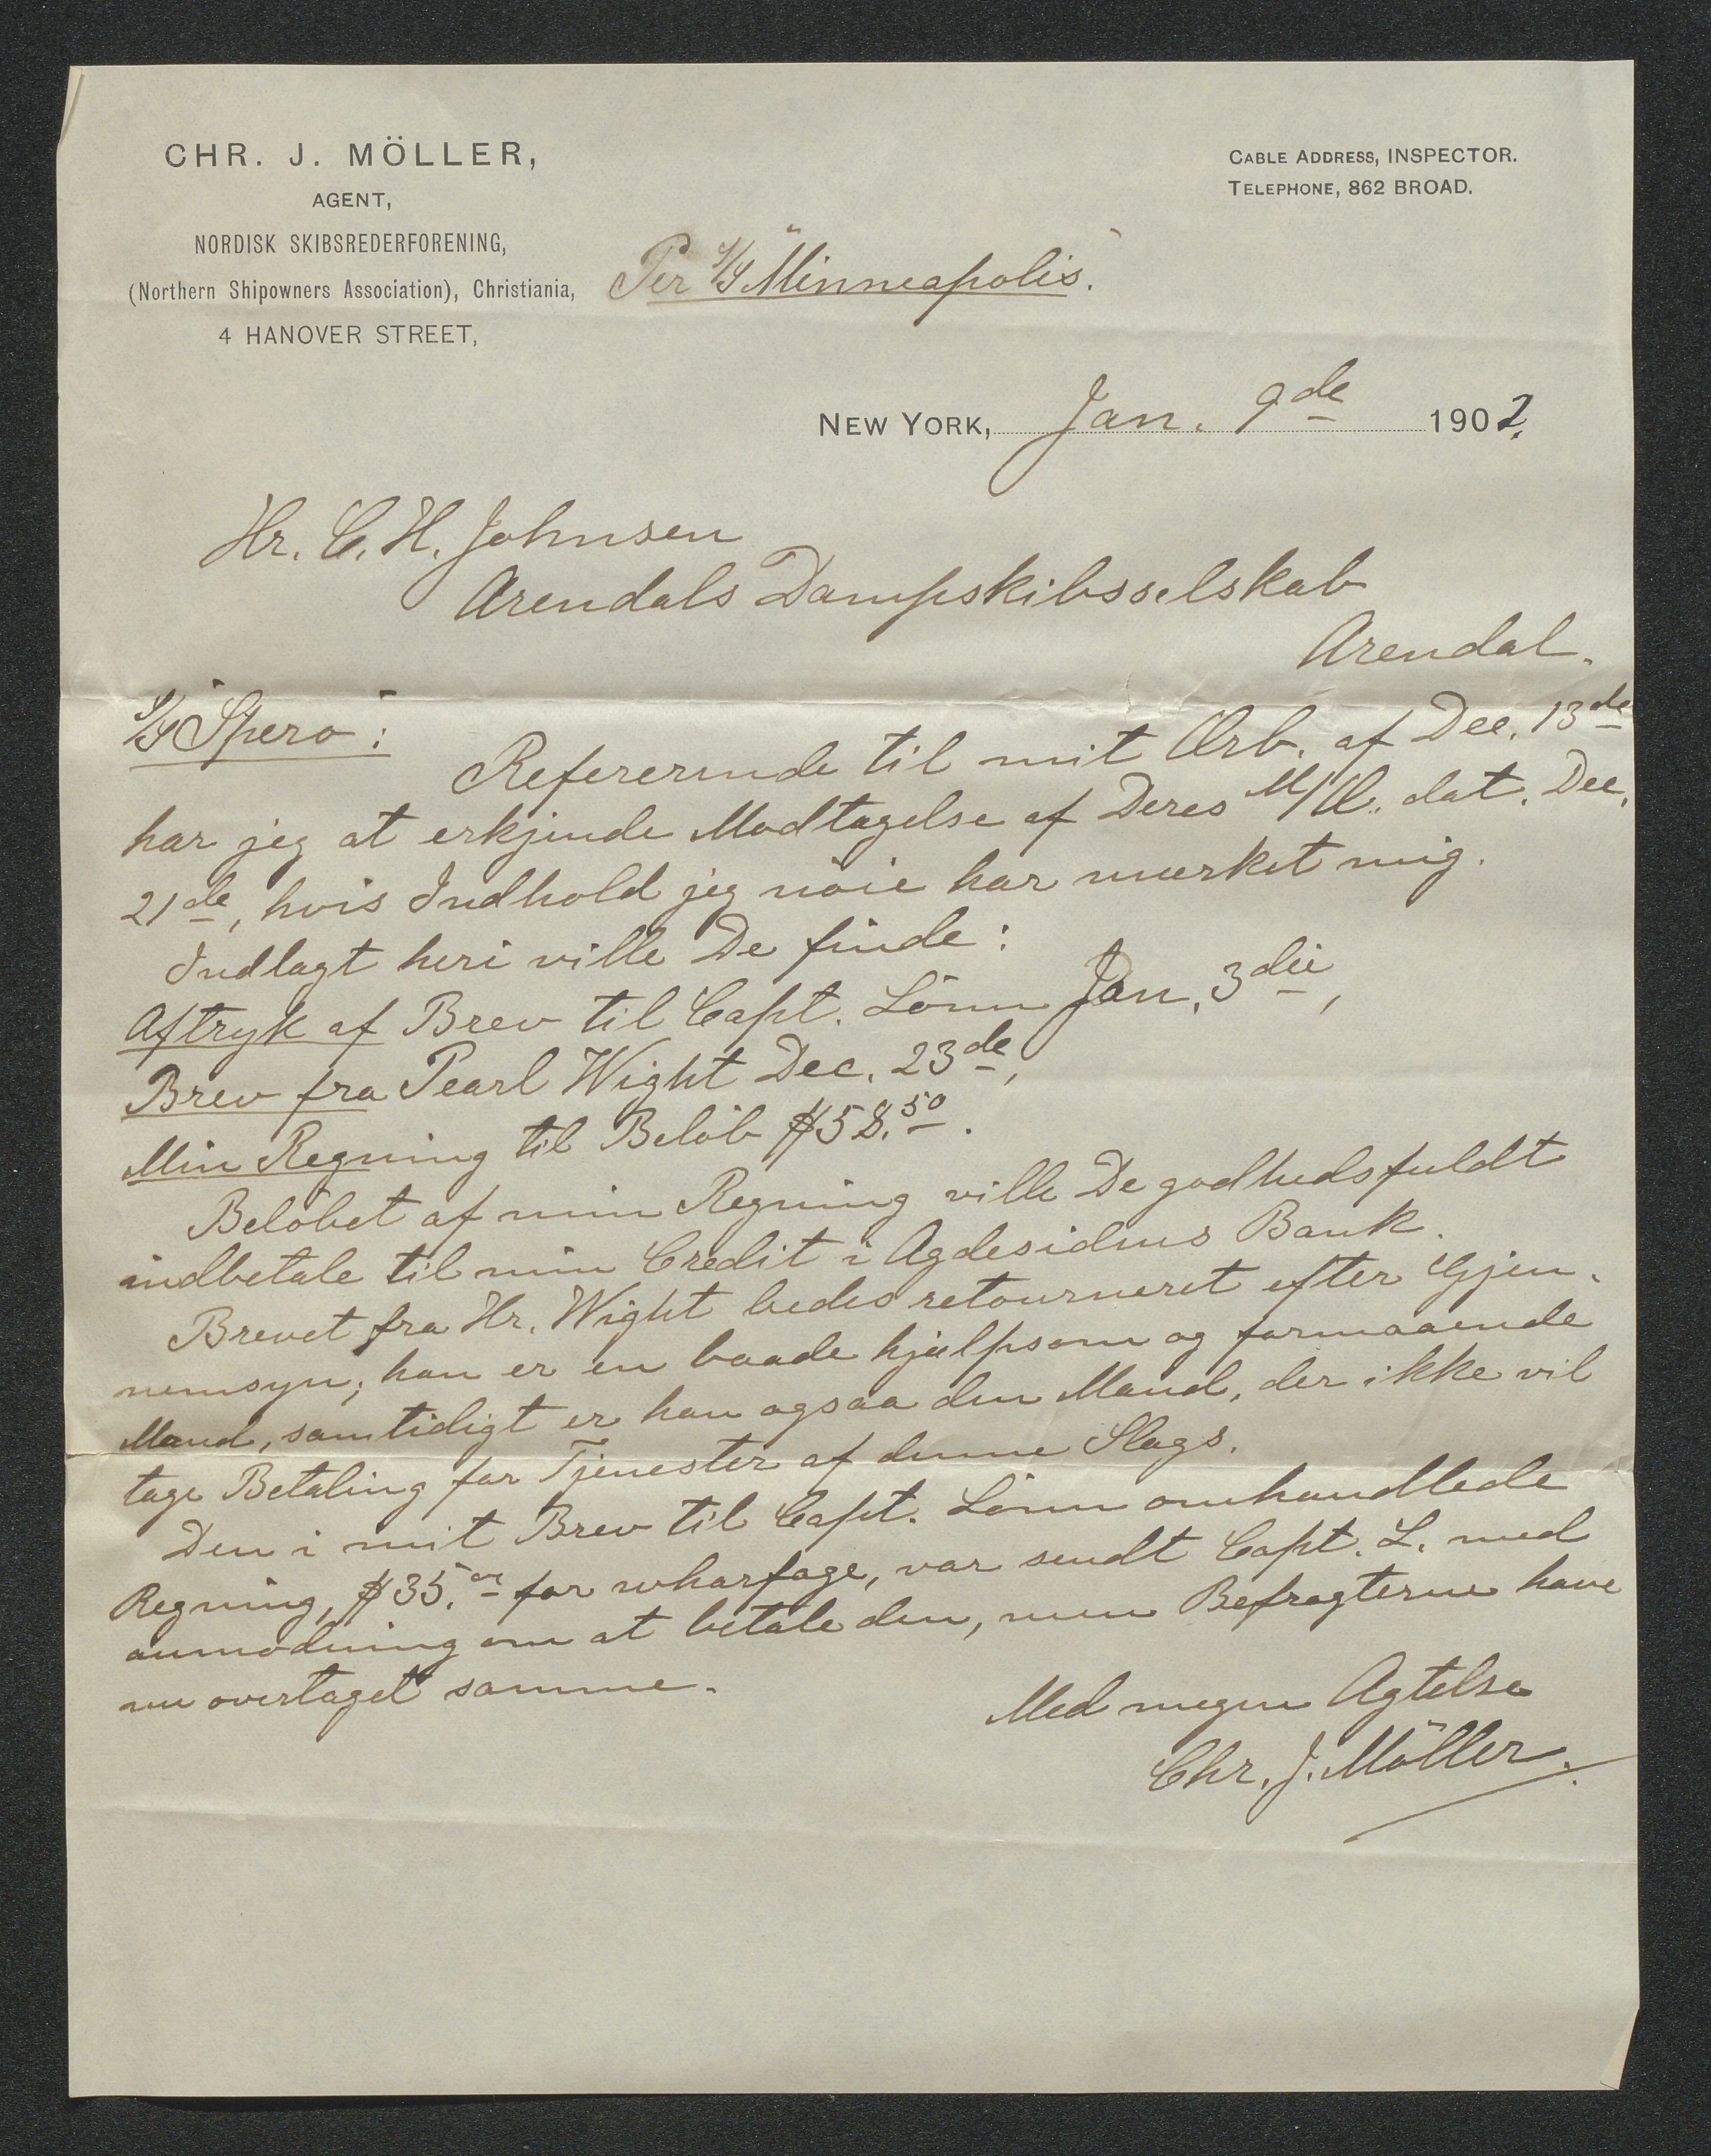 CHR. J. MÖLLER,
AGENT,
NORDISK SKIBSREDERFORENING,
(Northern Shipowners Association), Christiania,
4 HANOVER STREET,
CABLE ADDRESS, INSPECTOR.
TELEPHONE, 862 BROAD.
Per S/S "Minneapolis".
NEW YORK, Jan. 9de 1902.
Hr. C. H. Johnsen
Arendals Dampskibsselskab
Arendal.
S/S "Spero":
Refererende til mit Ærb. af Dec. 13de
har jeg at erkjende Modtagelse af Deres M/Æ. dat. Dec.
21de, hvis Indhold jeg nöie har mærket mig.
Indlagt heri ville De finde:
Aftryk af Brev til Capt. Lönn Jan. 3die,
Brev fra Pearl Wight Dec. 23de,
Min Regning til Belöb $58.50.
Belöbet af min Regning ville De godhedsfuldt
indbetale til min Credit i Agdesidens Bank.
Brevet fra Hr. Wight bedes retourneret efter Gjen-
nemsyn; han er en baade hjælpsom og formaaende
Mand, samtidigt er han ogsaa den Mand, der ikke vil
tage Betaling for Tjenester af denne Slags.
Den i mit Brev til Capt. Lönn omhandlede
Regning, $35.00 for wharfage, var sendt Capt. L. med
anmodning om at betale den, men Befragterne have
nu overtaget samme.
Med megen Agtelse
Chr. J. Möller.